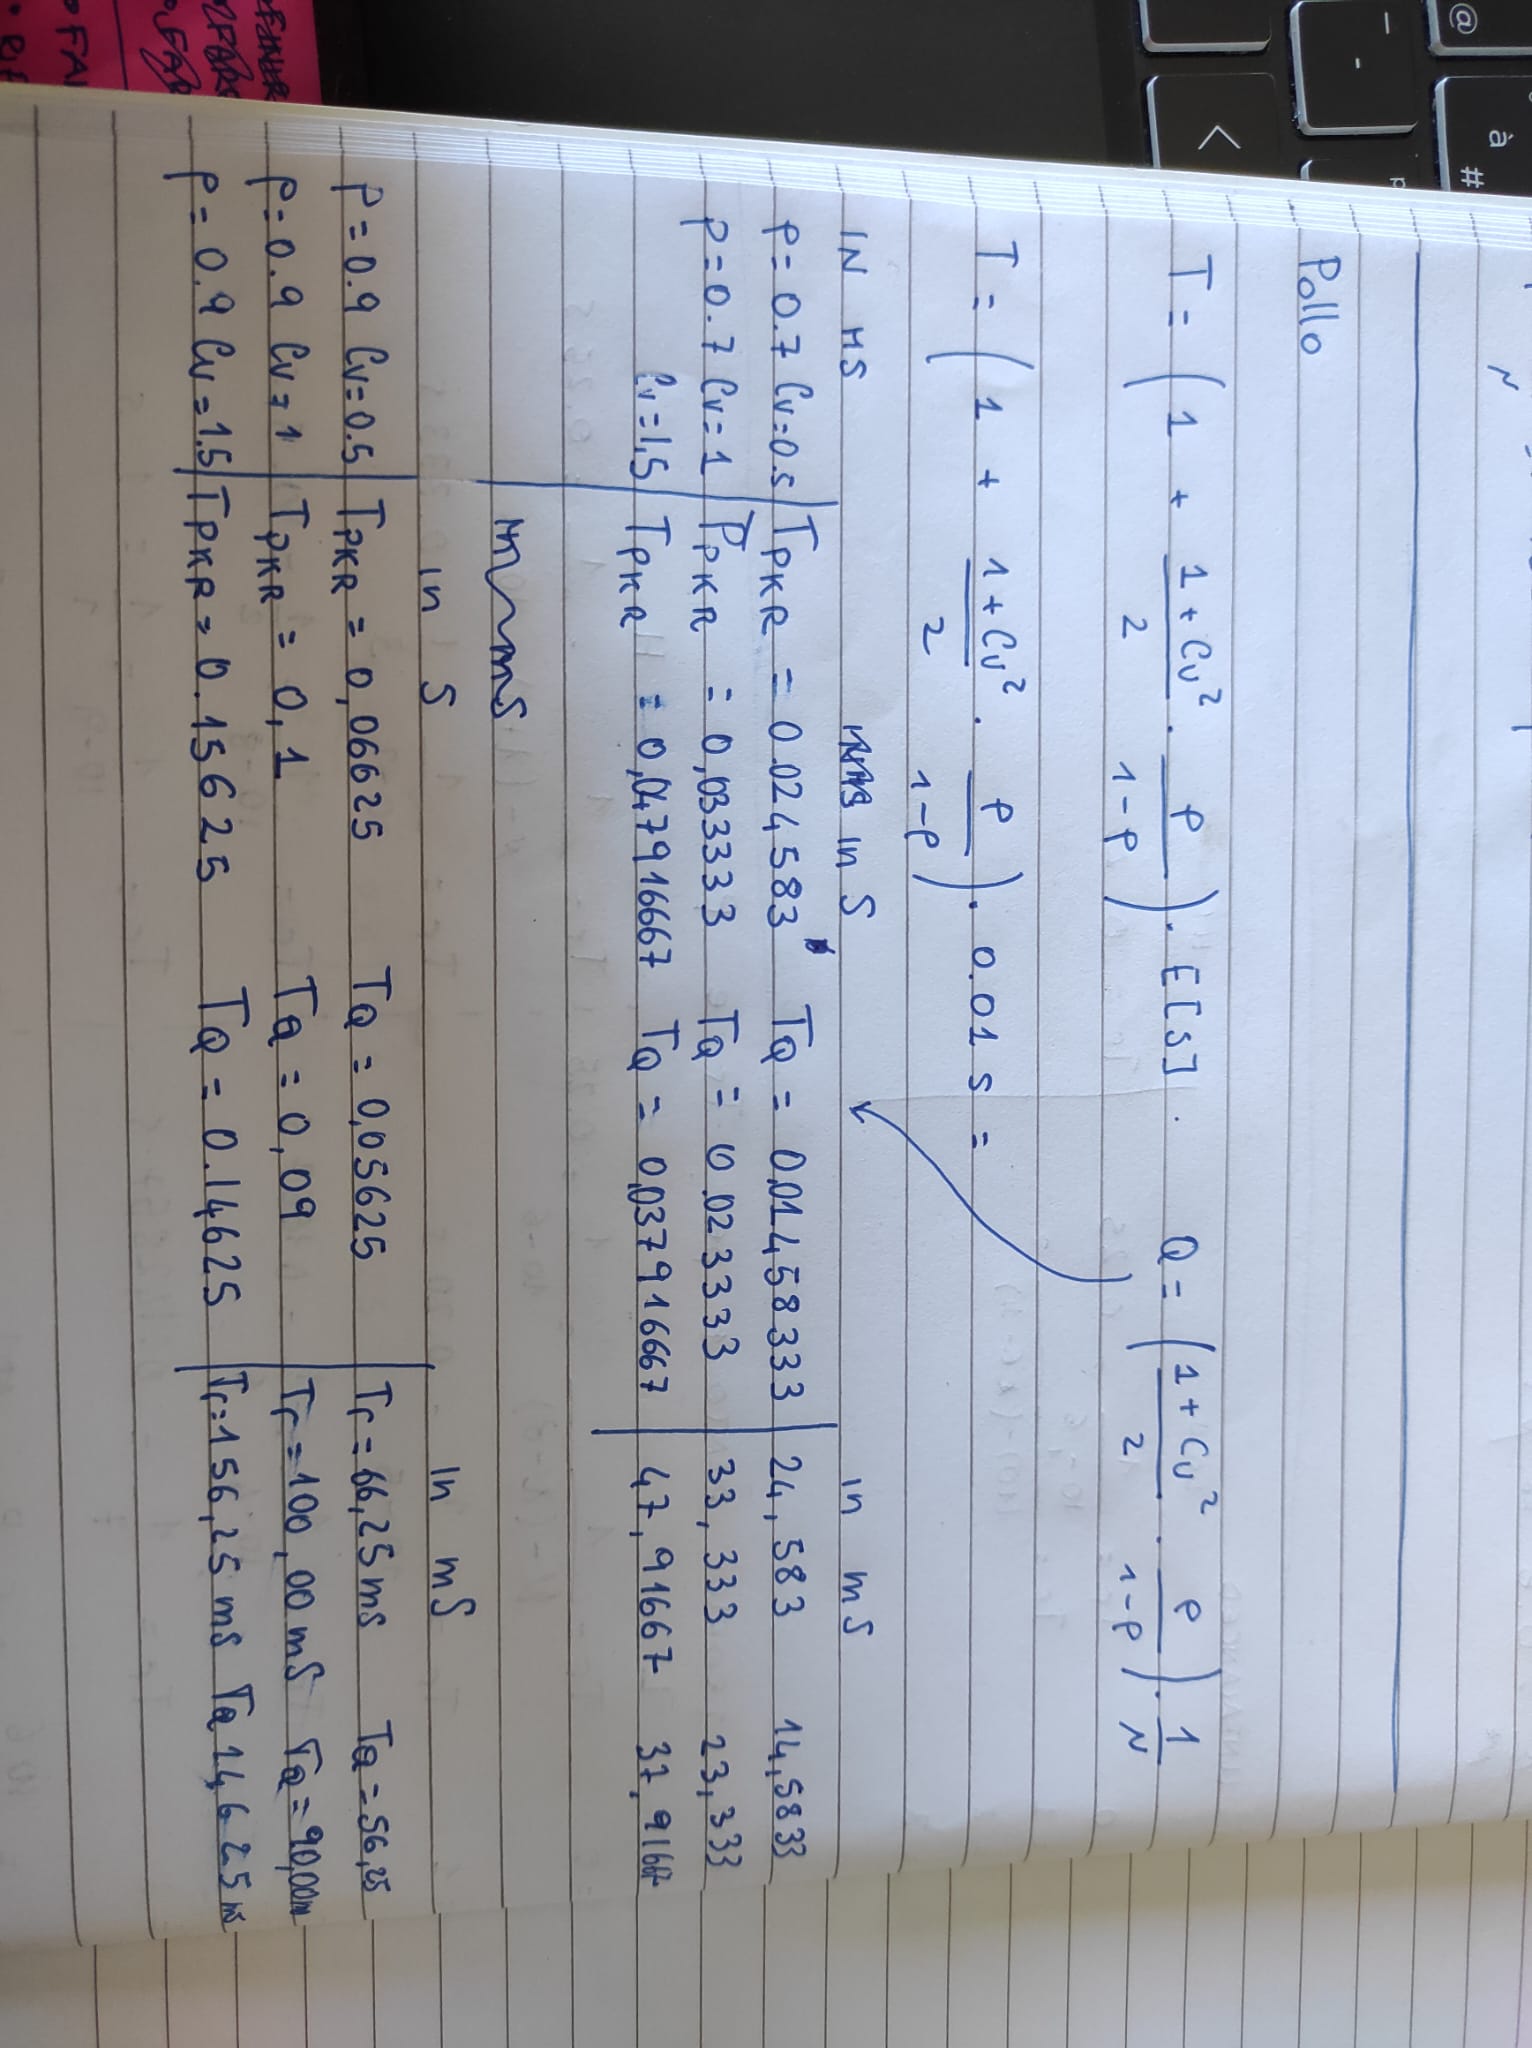 Pollo
T = ( 1 + 1+Cv² / 2 · ρ / 1-ρ ) · E[S] . Q = ( 1+Cv² / 2 · ρ / 1-ρ ) · 1 / N
T = ( 1 + 1+Cv² / 2 · ρ / 1-ρ ) · 0.01 s =
IN MS in S in mS
ρ=0.7 Cv=0.5 TPKR = 0.024583 TQ = 0,01458333 24,583 14,5833
ρ=0.7 Cv=1 TPKR = 0,033333 TQ = 0.023333 33,333 23,333
Cv=1,5 TPKR = 0,047916667 TQ = 0,03791667 47,91667 37,91667
mS
in S in mS
ρ=0.9 Cv=0.5 TPKR = 0,06625 TQ = 0,05625 Tr=66,25ms TQ=56,25
ρ=0.9 Cv=1 TPKR = 0,1 TQ = 0,09 Tr=100,00mS TQ=90,00m
ρ=0.9 Cv=1.5 TPKR = 0.15625 TQ = 0.14625 Tr=156,25 ms TQ 14,625ms
@
à
#
<
-
FAI